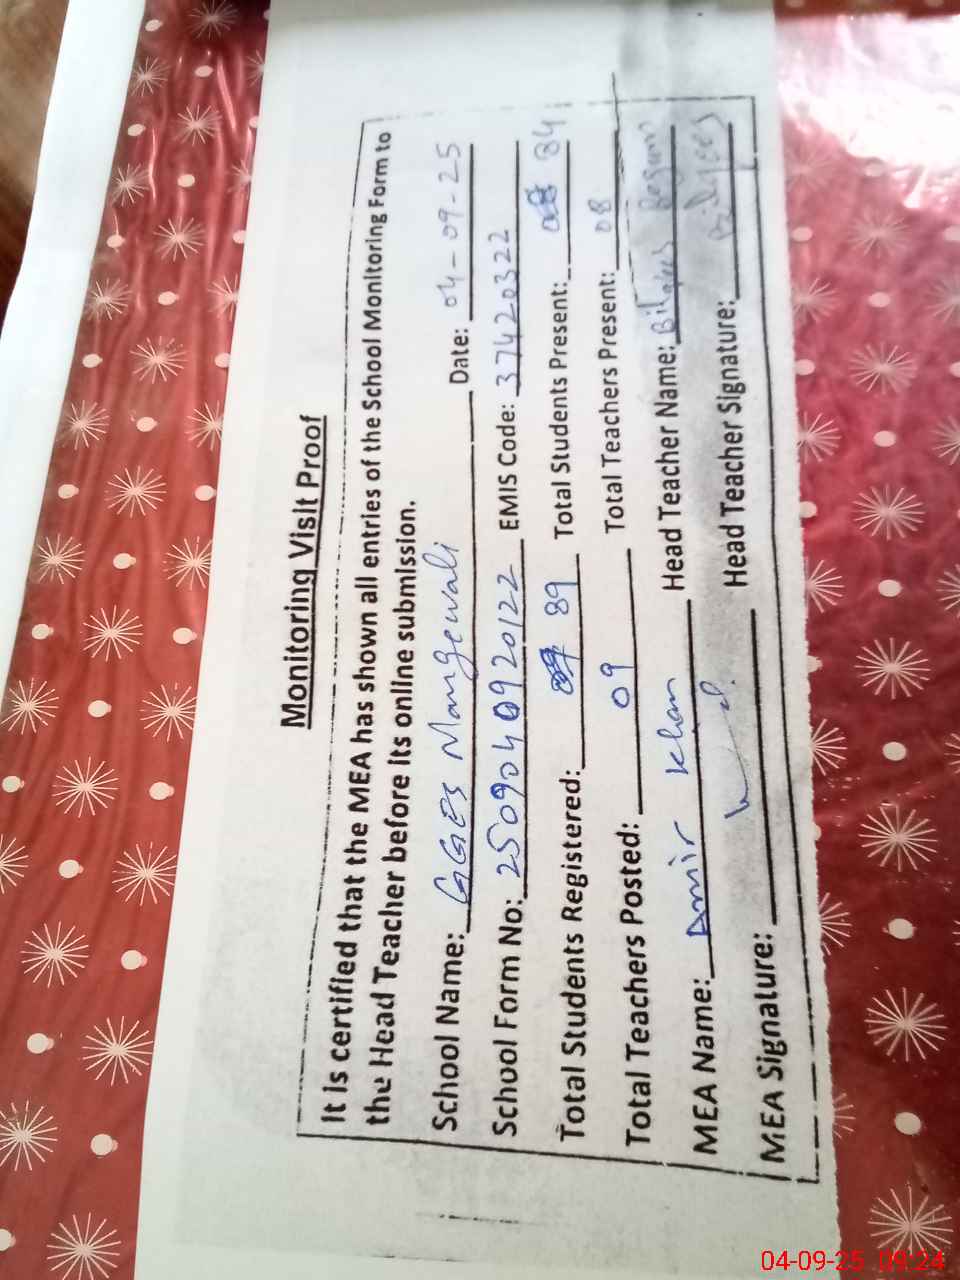 Monitoring Visit Proof
It is certified that the MEA has shown all entries of the School Monitoring Form to
the Head Teacher before its online submission.
School Name: GGES Mangewali Date: 04-09-25
School Form No: 2509040920122 EMIS Code: 37420322
Total Students Registered: 89 Total Students Present: 84
Total Teachers Posted: 09 Total Teachers Present: 08
MEA Name: Amir Khan Head Teacher Name: Bilqees Begum
MEA Signature: Head Teacher Signature: Bilqees
04-09-25 09:24